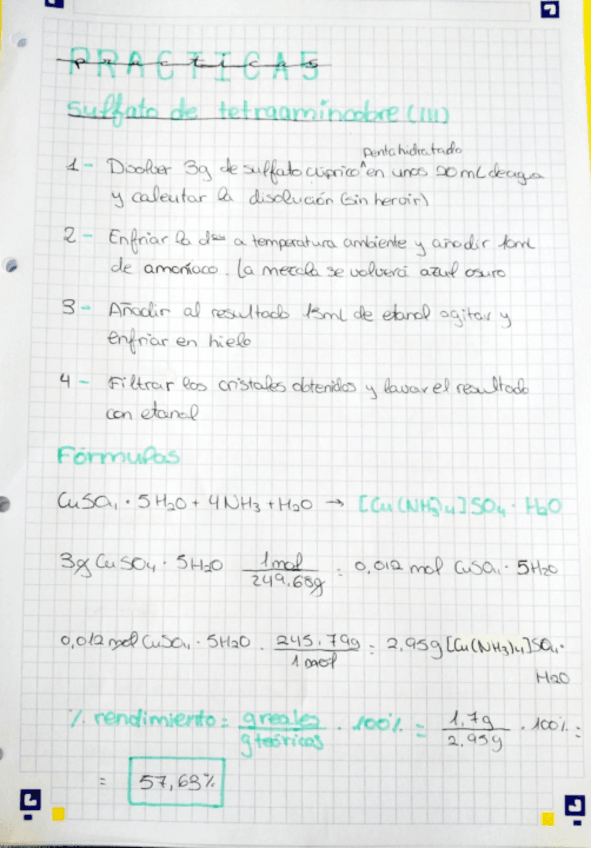 PRACTICAS
Sulfato de tetraaminocobre (III)
pentahidratado
1- Disolver 3g de sulfato cúprico ^ en unos 20mL de agua
y calentar la disolución (sin hervir)
2- Enfriar la dson a temperatura ambiente y añadir 10mL
de amoníaco. La mezcla se volverá azul oscuro
3- Añadir al resultado 15mL de etanol agitar y
enfriar en hielo
4- Filtrar los cristales obtenidos y lavar el resultado
con etanol
Fórmulas
CuSO4 · 5H2O + 4NH3 + H2O → [Cu(NH3)4]SO4 · H2O
3g CuSO4 · 5H2O 1mol = 0,012 mol CuSO4 · 5H2O
249.68g
0,012 mol CuSO4 · 5H2O · 245.79g = 2,95g [Cu(NH3)4]SO4 ·
1 mol
H2O
% rendimiento = g reales · 100% = 1,7g · 100% =
g teóricos 2,95g
= 57,63%